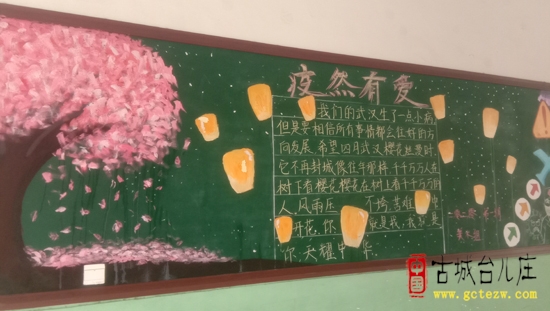 疫然有爱
我们的武汉生了一点小病
但是要相信所有事情都会往好的方
向发展 希望四月武汉樱花烂漫时
它不再封城像往年那样千千万万人在
树下看樱花樱花在树上看千千万万的
人 风雨压 不垮 苦难 中
开花, 你 就是我, 我 是
你 天耀中华
中国
古城台儿庄
www.gctezw.com